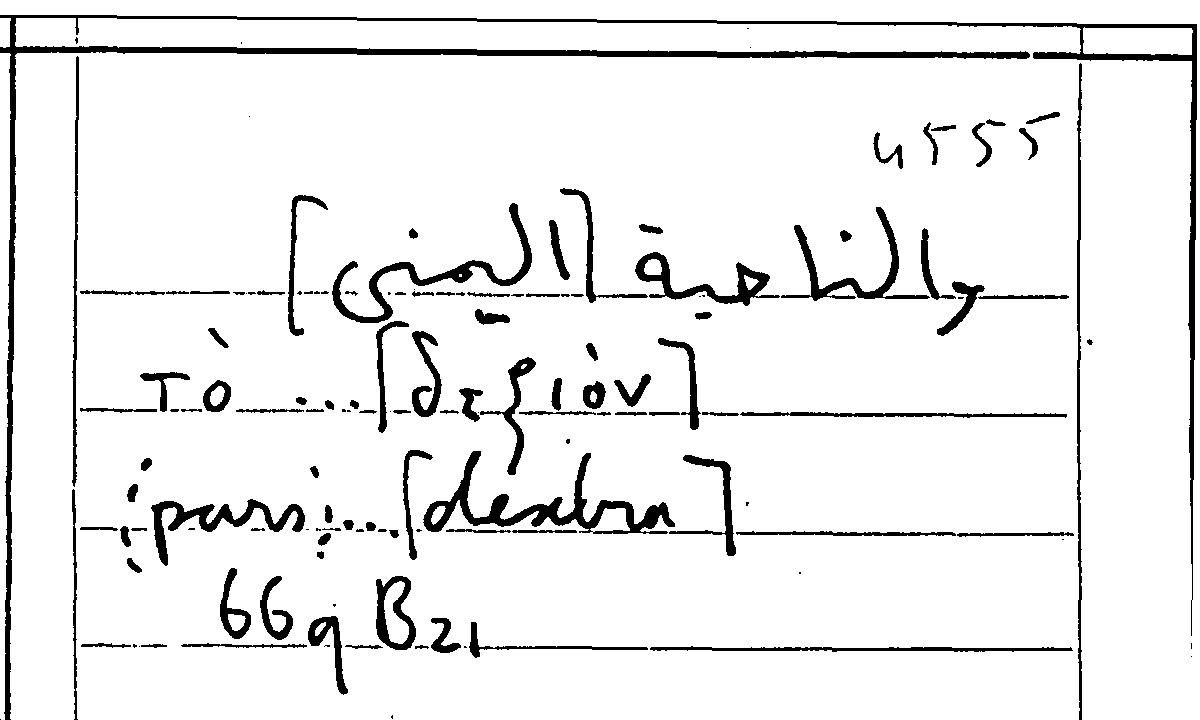 4555
والناحية [اليمنى]
τὸ ... [δεξιὸν]
(pars) ... [dextra]
669 B21